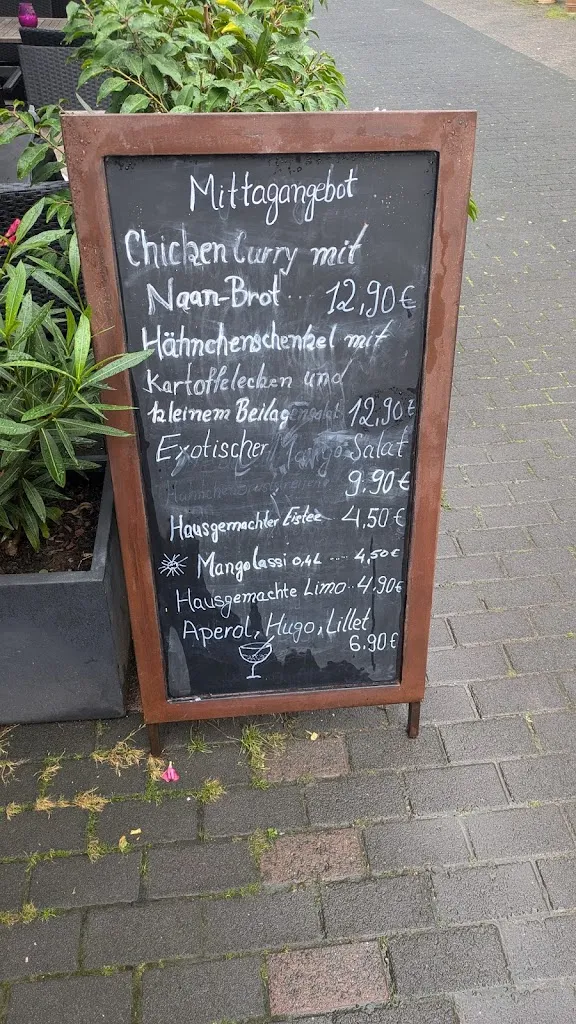 Mittagangebot
Chicken Curry mit
Naan-Brot ... 12,90 €
Hähnchenschenkel mit
Kartoffelecken und
kleinem Beilagensalat 12,90 €
Exotischer Mango Salat
9.90 €
Hausgemachter Eistee - 4,50 €
Mangolassi 0,4L ---- 4,50 €
Hausgemachte Limo .. 4,90 €
Aperol, Hugo, Lillet
6.90 €